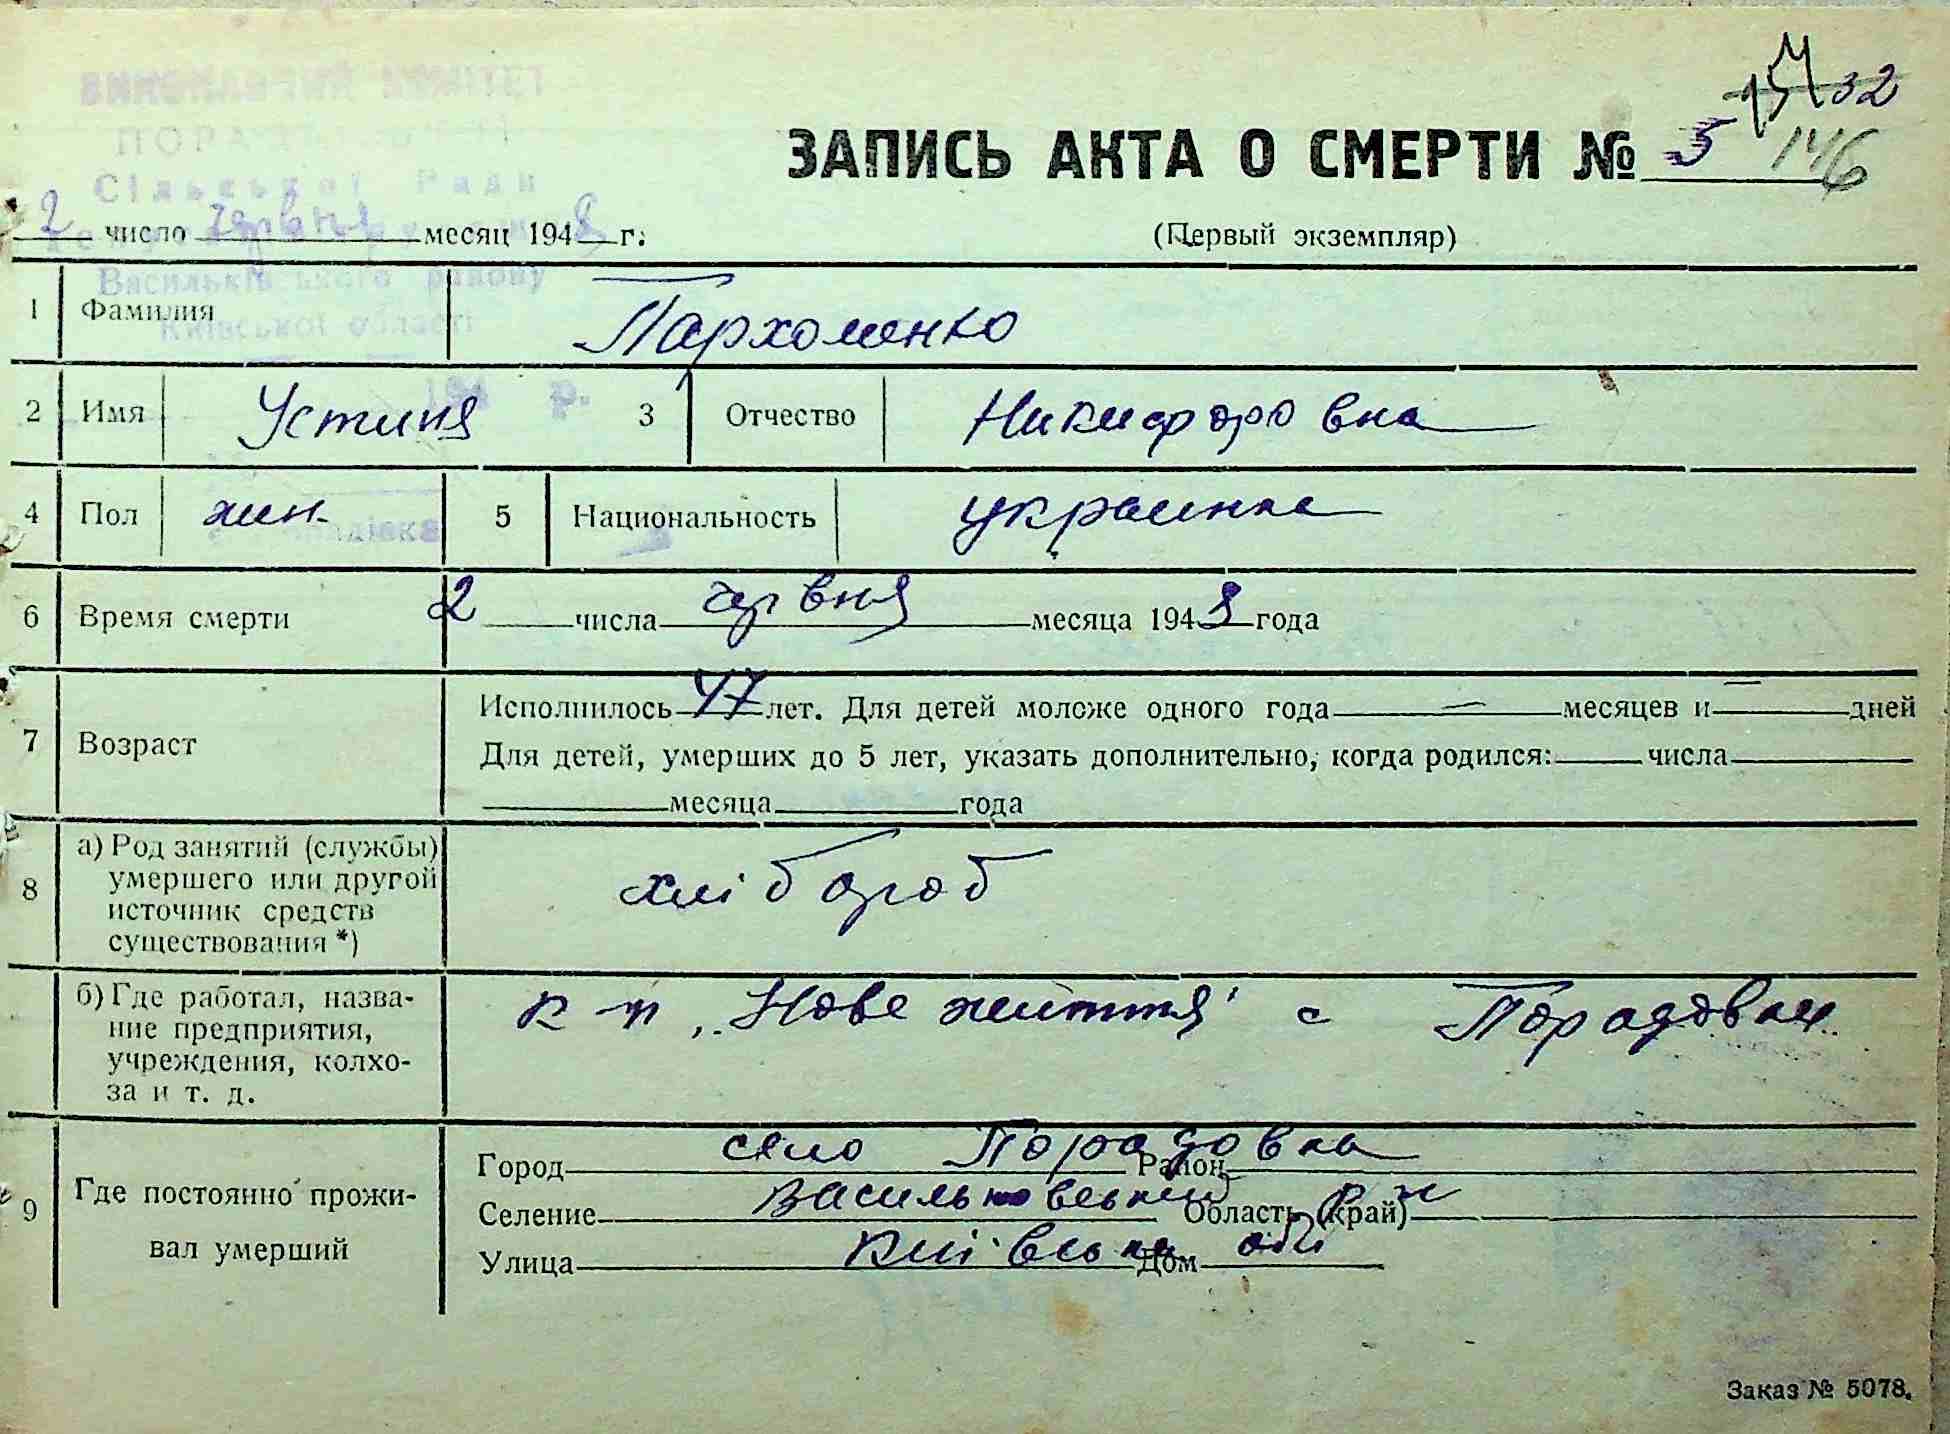 ВИКОНАВЧИЙ КОМІТЕТ
Сільської Ради
Васильківського району
Київської області
194 р.
32
ЗАПИСЬ АКТА О СМЕРТИ № 5 146
2 число червня месяц 1948 г.
(Первый экземпляр)
1 Фамилия Пархоменко
2 Имя Устиня 3 Отчество Никифоровна
4 Пол жин. 5 Национальность украинка
6 Время смерти 2 числа червня месяца 1948 года
7 Возраст Исполнилось 47 лет. Для детей моложе одного года — месяцев и — дней
Для детей, умерших до 5 лет, указать дополнительно, когда родился: числа
месяца года
8 а) Род занятий (службы) умершего или другой источник средств существования *) хлібороб
б) Где работал, название предприятия, учреждения, колхоза и т. д. к-п „Нове життя" с Порадовки
9 Где постоянно проживал умерший
Город село Порадовка Район
Селение Васильковський р-н Область (край)
Улица Київська обл Дом
Заказ № 5078.